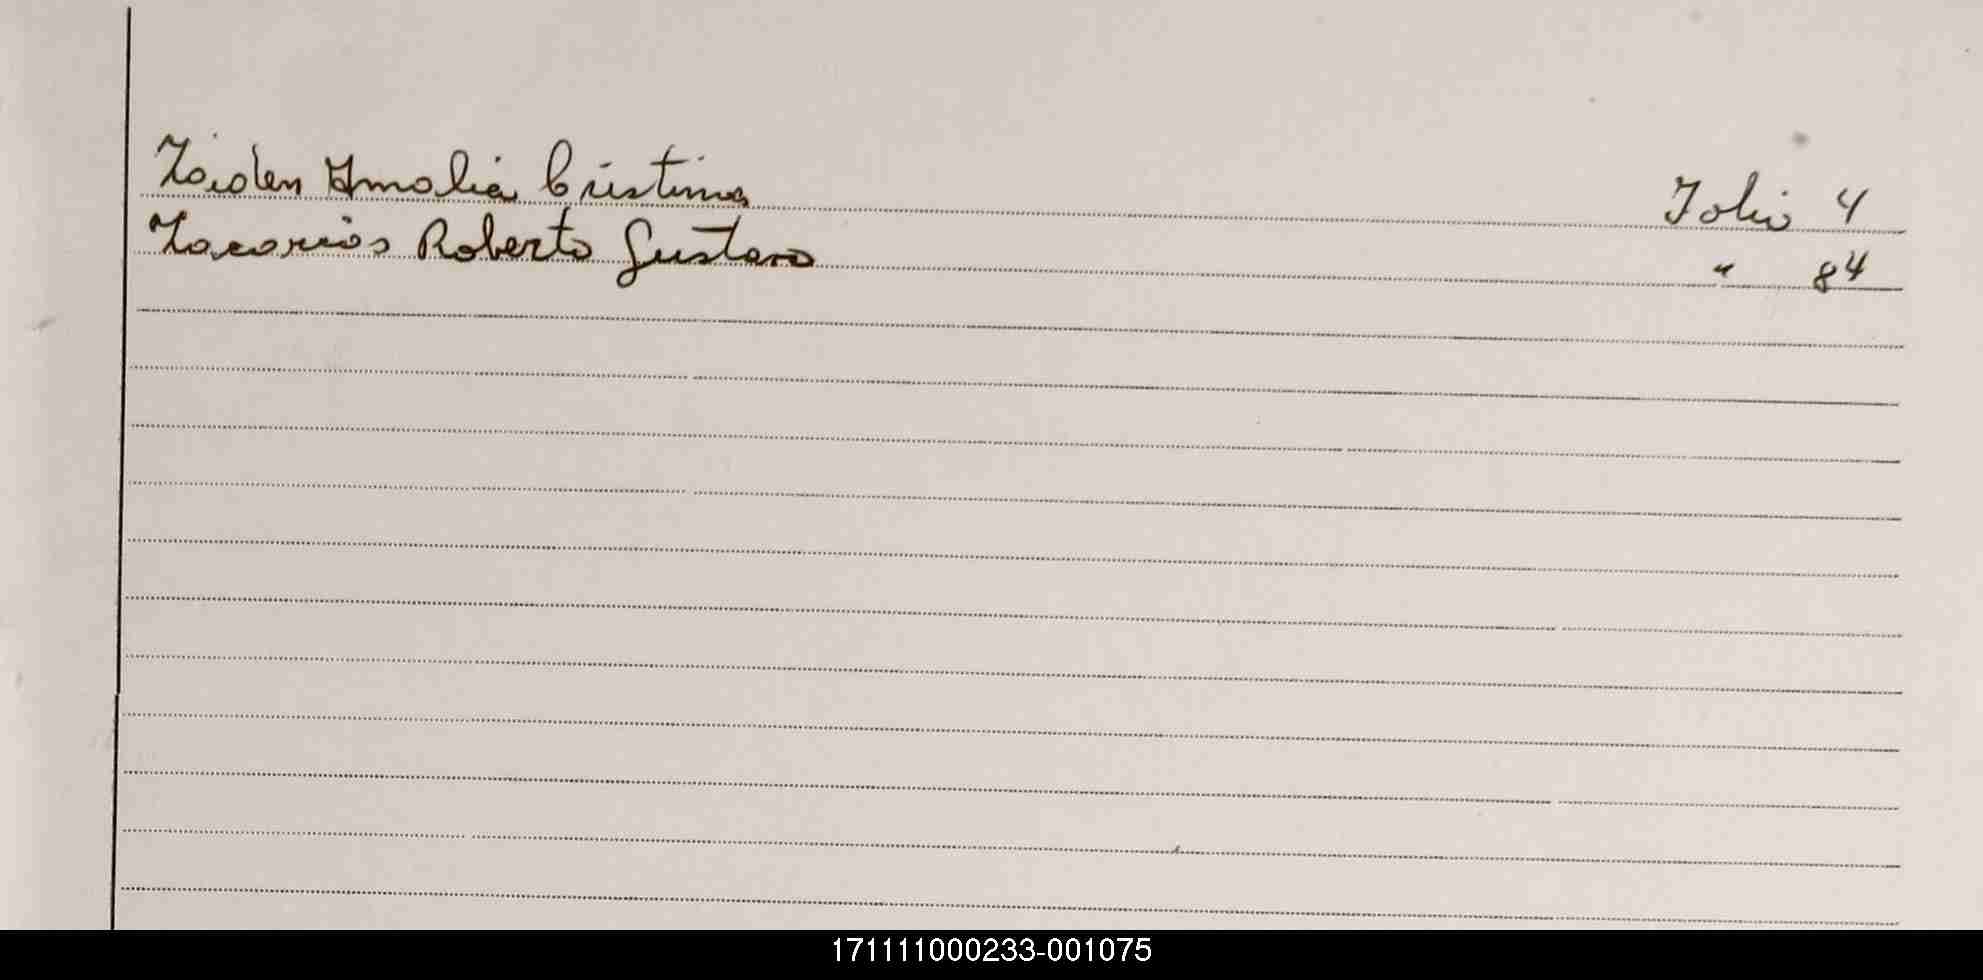 Zaiden Amalia Cristina Folio 4
Zacarias Roberto Gustavo " 84
171111000233-001075